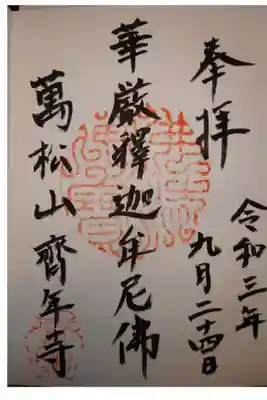 奉拝
令和三年
九月二十四日
華厳釋迦牟尼佛
萬松山 齊年寺